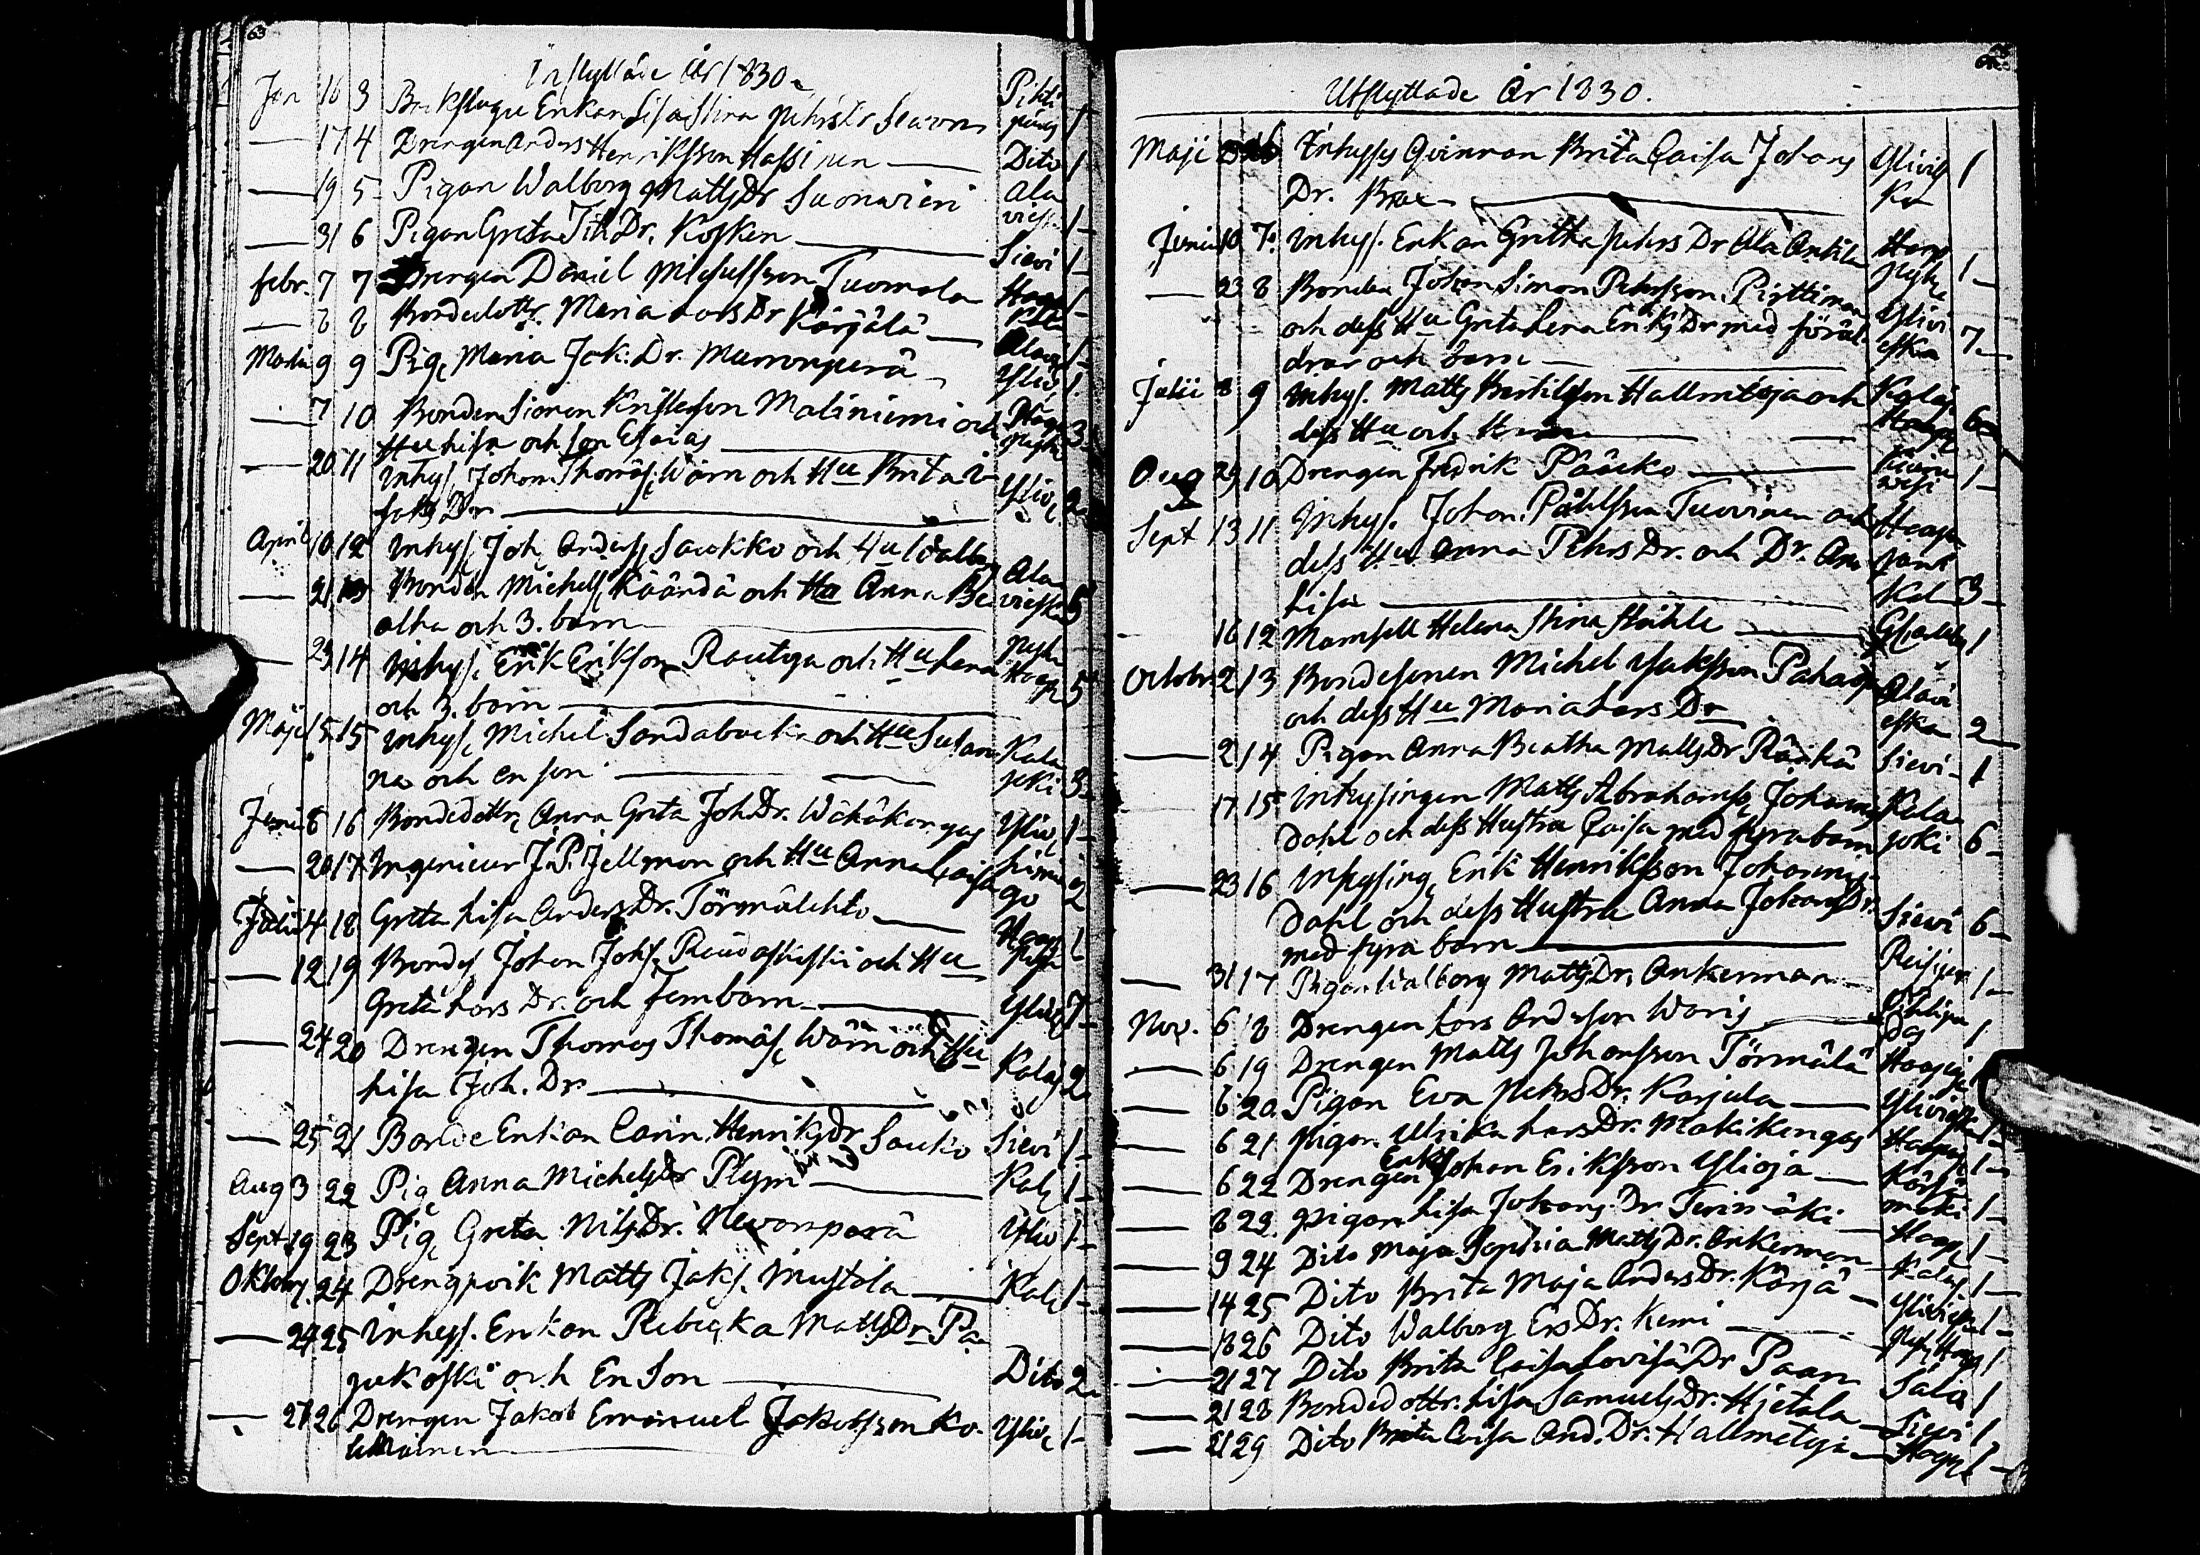 63
Inflyttade År 1830.
Jan 16 3 Enkan Lisa Stina Pehrs Dr Pihti
pudas 1
— 17 4 Drengen Anders Henriksson Hassinen — Dito 1
— 19 5 Pigan Walborg Matts Dr Suonvieri Ala
viesk 1
— 31 6 Pigan Greta Joh Dr. Kosken — Sievi 1
febr. 7 7 Drengen Daniel Michelsson Tuomala Haap 1
— 8 8 Bondedottr. Maria Lars Dr Karjälä —
9 9 Pig. Maria Jak: Dr. Ylivi 1
— 7 10 Bonden Simon Maliniemi och Haap
Hu Lisa och son Esaias — 3
— 20 11 Inhys. Johan Thomas. Wärn och Hu Brita I
saks Dr — Yliv. 2
April 10 12 Inhys. Joh. Anders. Saukko och Hu Walbor
— 21 13 Bonden Michel Käärdä och Hu Anna Be Ala
vieska 5
atha och 3. barn —
— 23 14 Inhys. Erik Eriksson Rautya och Hu Lena Pyh
Haap 5
och 3. barn —
Maji 15 15 Inhys. Michel Sandabacka och Hu Susan Kala
na och en son — joki 3
Juni 8 16 Bondedottr. Anna Greta Joh Dr. Wähäkangas Yliv. 1
— 20 17 Ingenieur J.P. Jellman och Hu Anna Caisa Limin
go 2
Julii 4 18 Greta Lisa Anders Dr. Törmälehto — Haap 1
— 12 19 Bondes. Johan Johs. Raudaskoski och Hu
Greta Lars Dr. och fem barn — Yliv 7
— 24 20 Drengen Thomas Thomas. Wärn och Hu
Lisa Joh. Dr — Kalaj 2
— 25 21 Bonde Enkan Carin Henriks Dr Sauko Sievi 1
Aug 3 22 Pig. Anna Michels Dr Plym — Kalj 1
Sept 19 23 Pig. Greta Nils Dr. Nevanperä Yliv 1
Oktober 1. 24 Drengpoik Matts Jaks. Mustola — Kalj 1
— 24 25 Inhyss. Enkan Rebecka Matts Dr Pa
jukoski och En Son — Dito 2
— 27 26 Drengen Jakob Emanuel Jakobsson Ko- Yliv. 1
—
Utflyttade År 1830.
Maji 6 Inhyses Qvinnan Brita Caisa Johans Ylivies
ka 1
Dr. Brax —
Junii 10 7. Inhys. Enkan Gretha Pehrs Dr Ala Anttila Haap
1
— 23 8 Bonden Johan Simon Pehrsson Pirttimaa Ylivi
och dess Hu Greta Lena Eriks Dr med föräl- eska 7
drar och barn —
Julii 8 9 Inhys. Matts Bertilsson Hallmetoja och Kalaj
dess Hu och — 6
Aug 29 10 Drengen Fredrik Pääcko — 1
Sept 13 11 Inhys. Johan Påhlsson Tuovinen och Haapa
dess Hu Anna Pehrs Dr. och Dr. Ana
Lisa — 3
16 12 Mamsell Helena Stina Ståhle — 1
October 2 13 Bondesonen Michel Isaksson Pahaoja Alavi
och dess Hu Maria Lars Dr eska 2
— 2 14 Pigan Anna Beatha Matts Dr. Räihä Sievi 1
17 15 Inhysingen Matts Abrahams. Johannis Kala
Dahl och dess Hustru Caisa med fyra barn joki 6
— 23 16 Inhysing. Erik Henriksson Johannis-
Dahl och dess Hustru Anna Johans Dr. Sievi 6
med fyra barn —
— 31 17 Pigan Walborg Matts Dr. Ankerman — Reisjer 1
Nov. 6 18 Drengen Lars Andersson Waris — Pihtipu
das 1
— 6 19 Drengen Matts Johansson Törmälä Haapaj. 1
— 6 20. Pigan Eva Pehrs Dr. Karjula — Ylivieska 1
— 6 21 Pigan. Ulrika Lars Dr. Makikangas Haapaj 1
— 6 22 Drengen Erik Johan Eriksson Ylioja — Kärsä
mäki 1
— 8 23. Pigan Lisa Johans Dr — Haap 1
— 9 24 Dito Maja Sophia Matts Dr. Ankerman — Kalaj 1
— 14 25 Dito Brita Maja Anders Dr. Körjä — Ylivieska 1
— 18 26 Dito Walborg Ers Dr. Kemi — Pyh. Haap 1
— 21 27 Dito Brita Caisa Lovisa Dr Paan Salo 1
— 21 28 Bondedottr. Lisa Samuels Dr. Hjetala — Sievi 1
— 21 29 Dito Brita Caisa And. Dr. Hallmetoja — Haap. 1